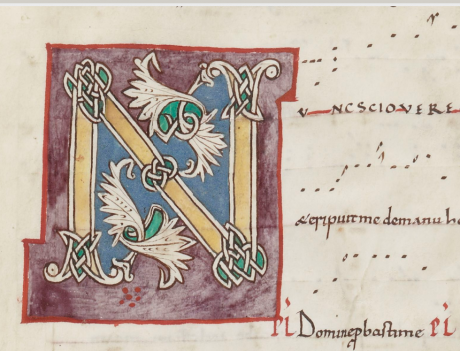 N
U NCSCIOVERE
& eripuit me de manu he
PỈ Domine ꝓbasti me PỈ